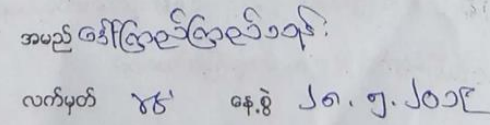 အမည် ဒေါ်ကြည်ကြည်
လက်မှတ် နေ့စွဲ ၂၈.၅.၂၀၁၉